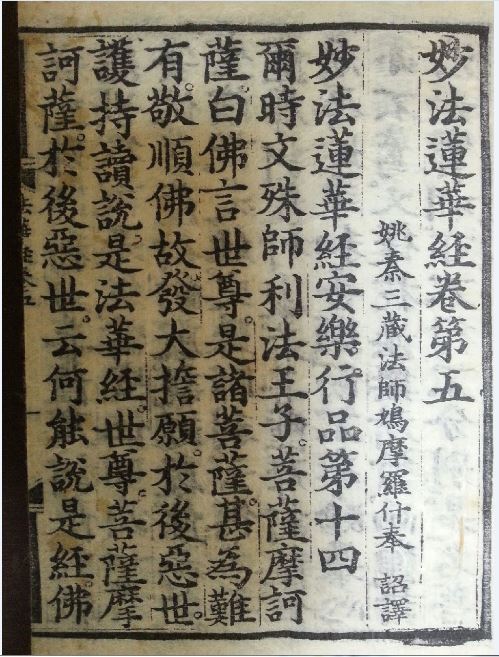 妙法蓮華経卷第五
姚秦三藏法師鳩摩羅什奉 詔譯
妙法蓮華経安樂行品第十四
爾時文殊師利法王子。菩薩摩訶
薩。白佛言世尊。是諸菩薩。甚為難
有。敬順佛故。發大擔願。於後惡世。
護持讀說。是法華経。世尊。菩薩摩
訶薩。於後惡世。云何能說是経。佛